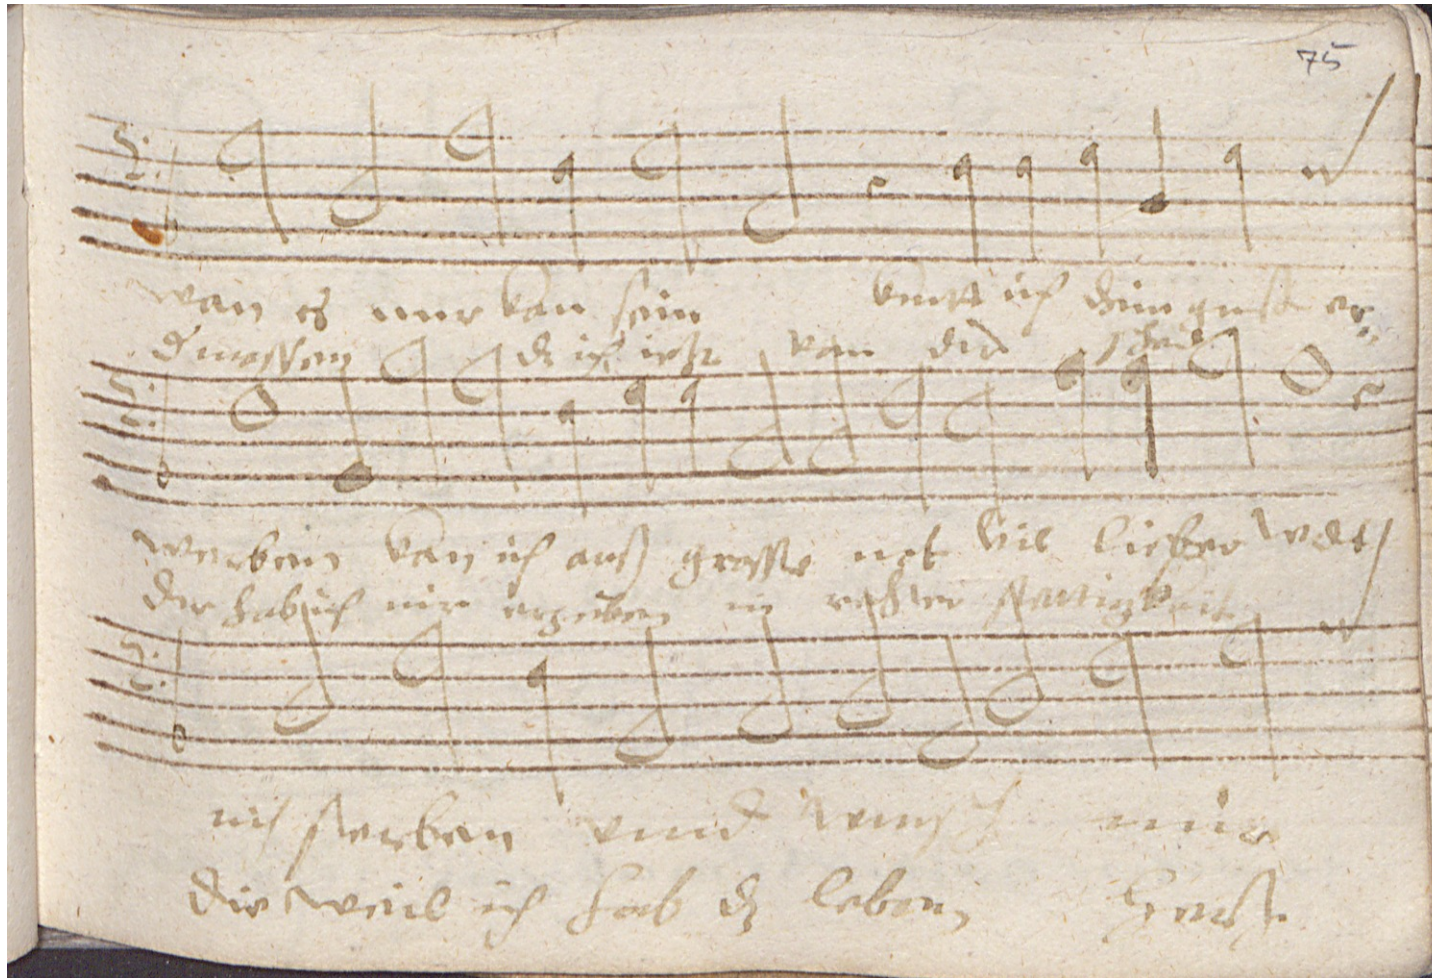 75
wan es nur kan sein kunt ich dein gust er=
d massen dz ich ietz von dir schaid
werben kan ich auß grosse not vil lieber wolt
der hab ich mir ergeben in rechter stettigkait
ich sterben vnnd wunsch mir
die weil ich hab dz leben hertz